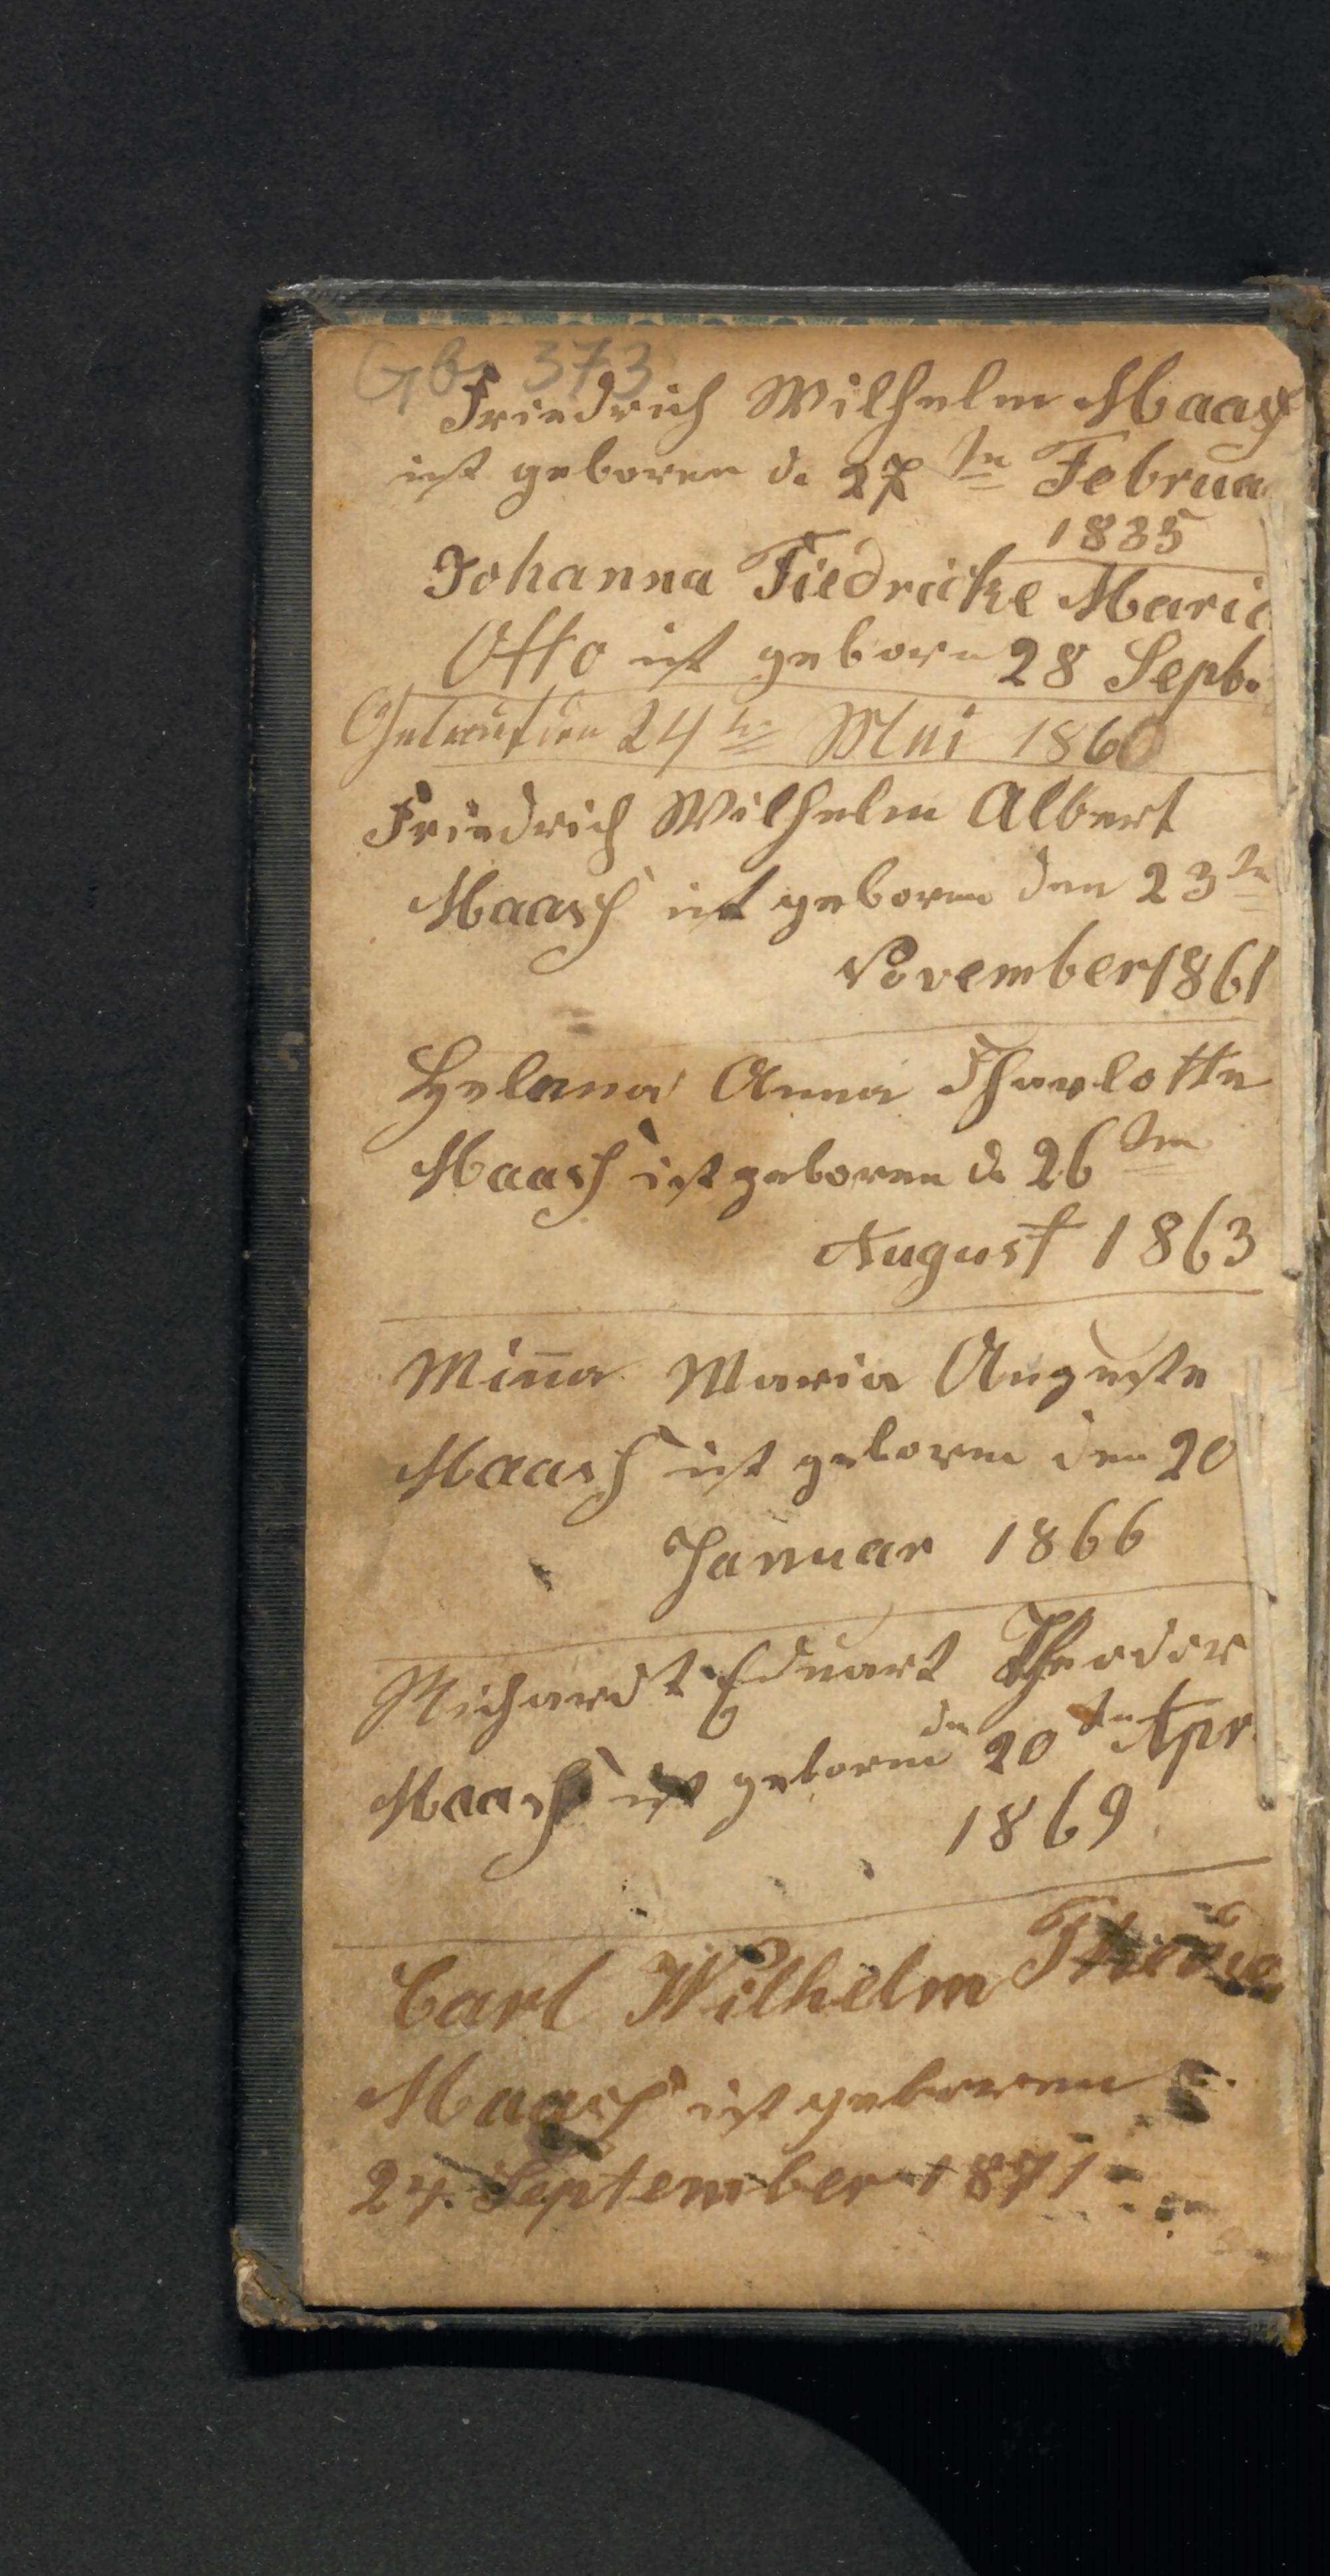 Gb. 373
Friedrich Wilhelm Maasß
ist geboren d. 27 tn Februa
1835
Johanna Fiedricke Marie
Otto ist geborn 28 Sept.
Getraut den 24 tn Mai 1860
Friedrich Wilhelm Albert
Maasß ist geboren den 23 tn
November 1861
Helena Anna Charlotte
Maasß ist geboren d. 26 ten
August 1863
Miña Maria Auguste
Maasß ist geboren den 20
Januar 1866
Richardt Eduart Theodor
Maasß ist geboren den 20 tn Apr.
1869
Carl Wilhelm
Maasß ist geboren d.
24. September 1871